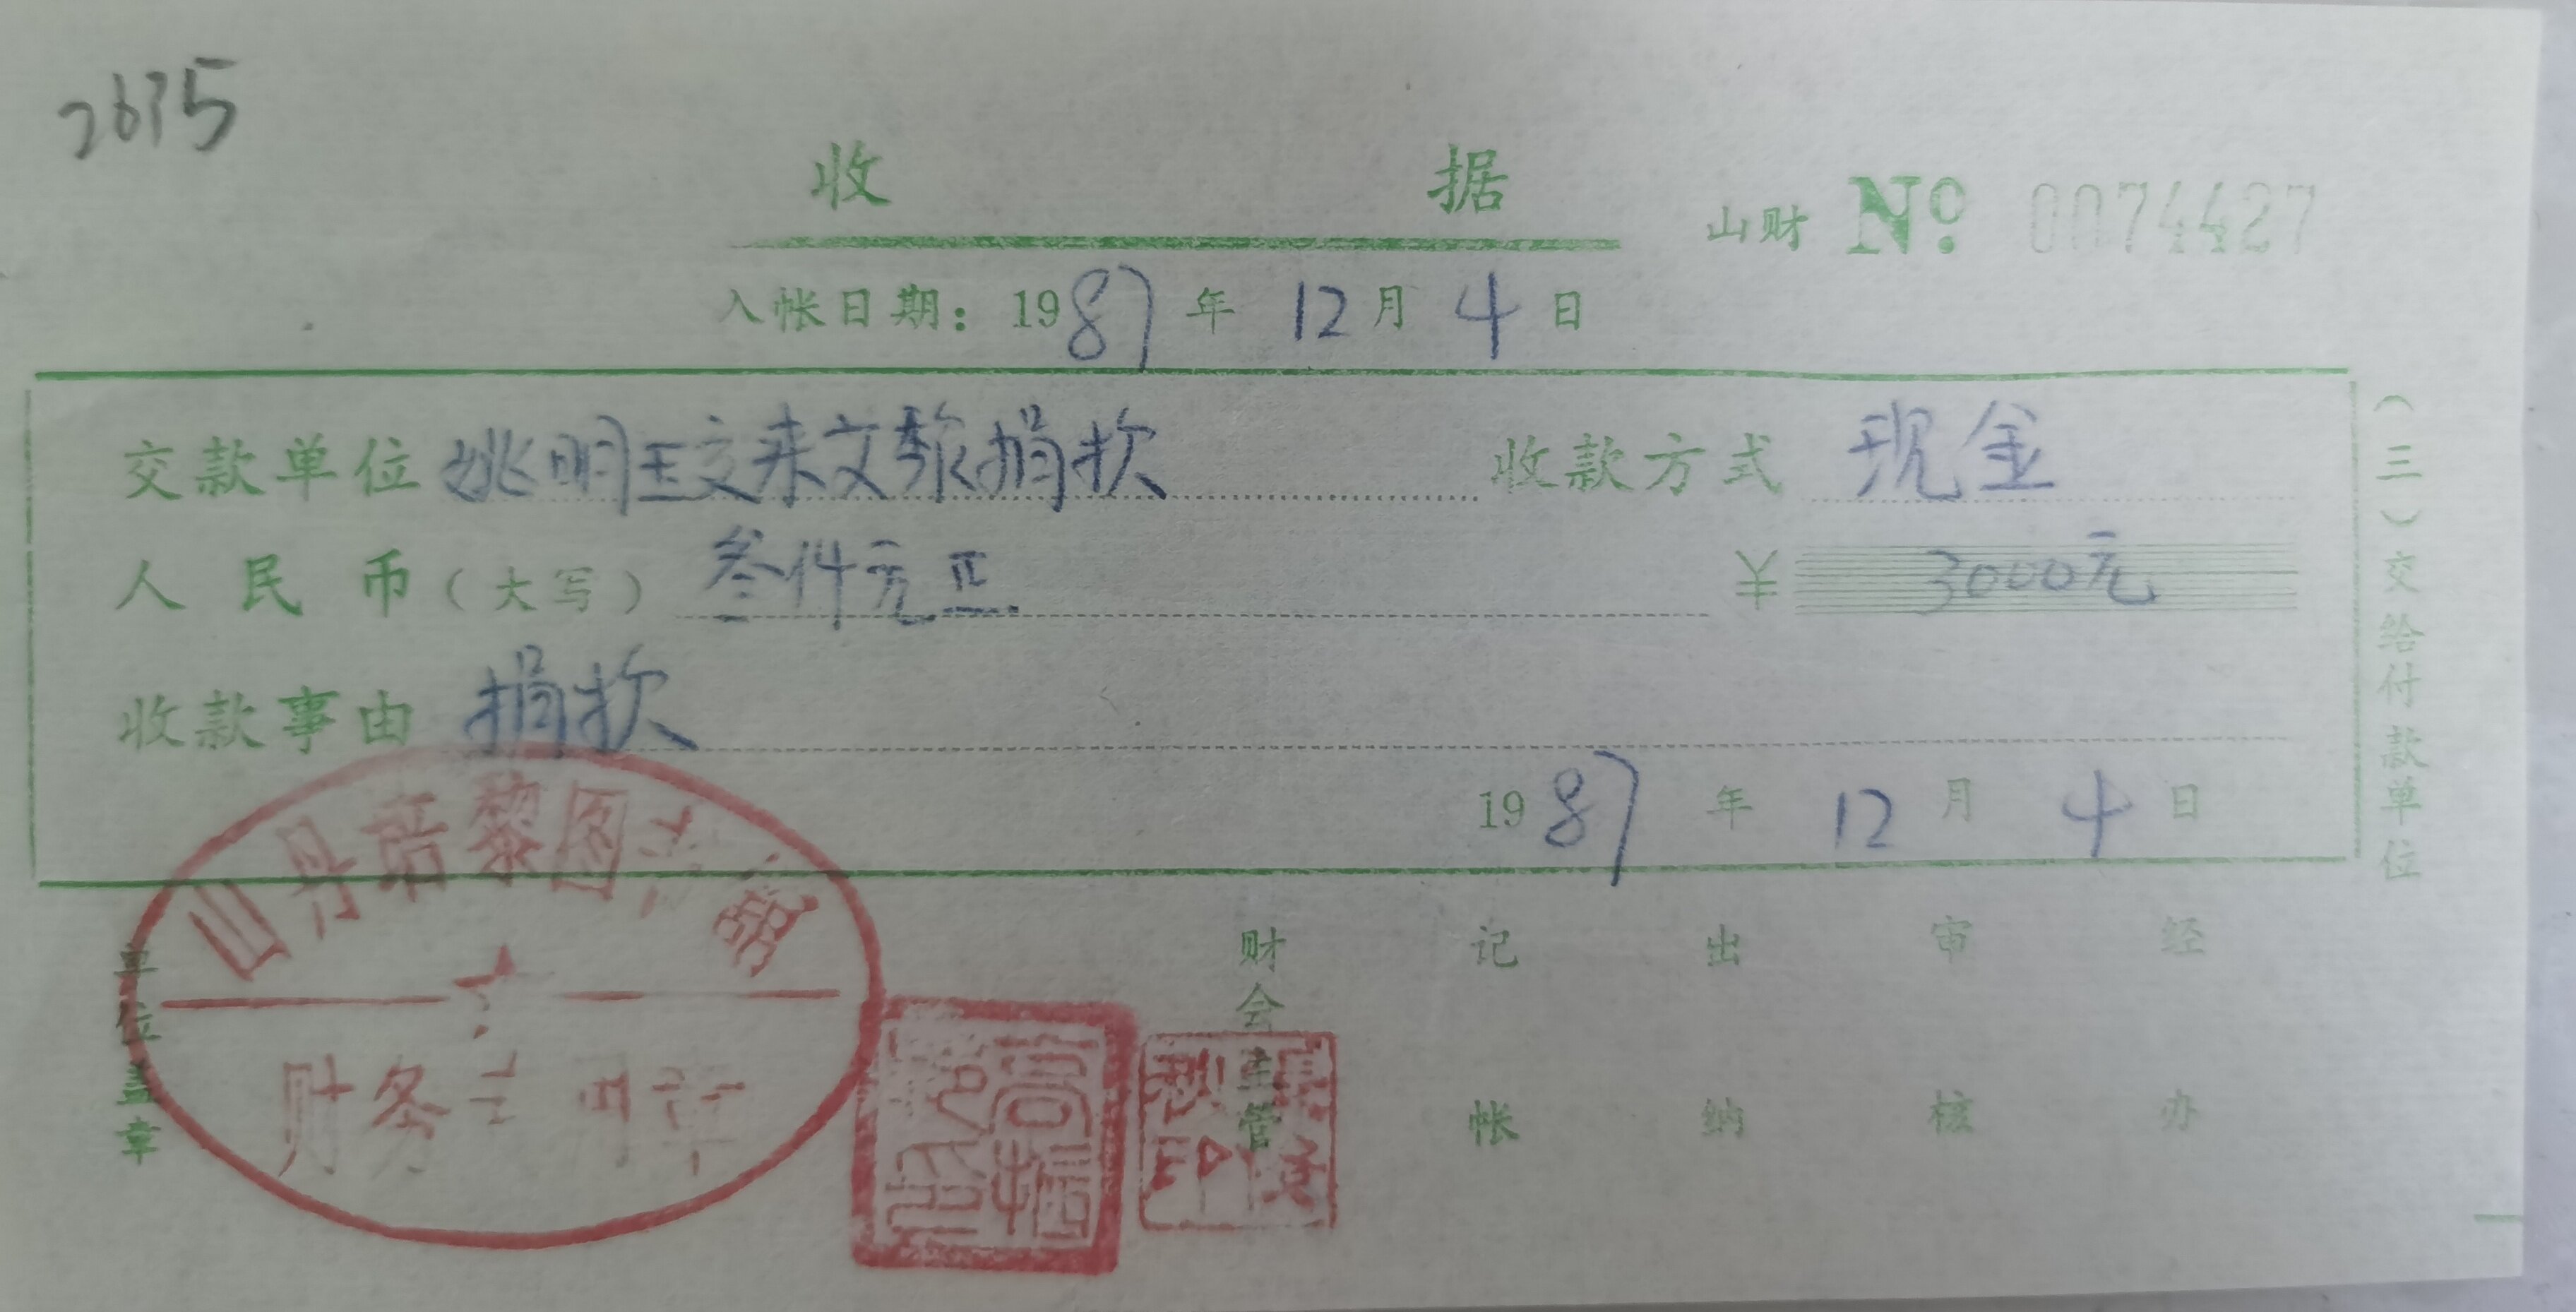 2675
收据
山财 № 0074427
入帐日期：1987年12月4日
交款单位 姚明珏交来文教捐款 收款方式 现金
人民币（大写）叁仟元正 ¥ 3000元
收款事由 捐款
1987年12月4日
（三）交给付款单位
山丹培黎图书馆
财务专用章
单位盖章
财会主管 记帐 出纳 审核 经办